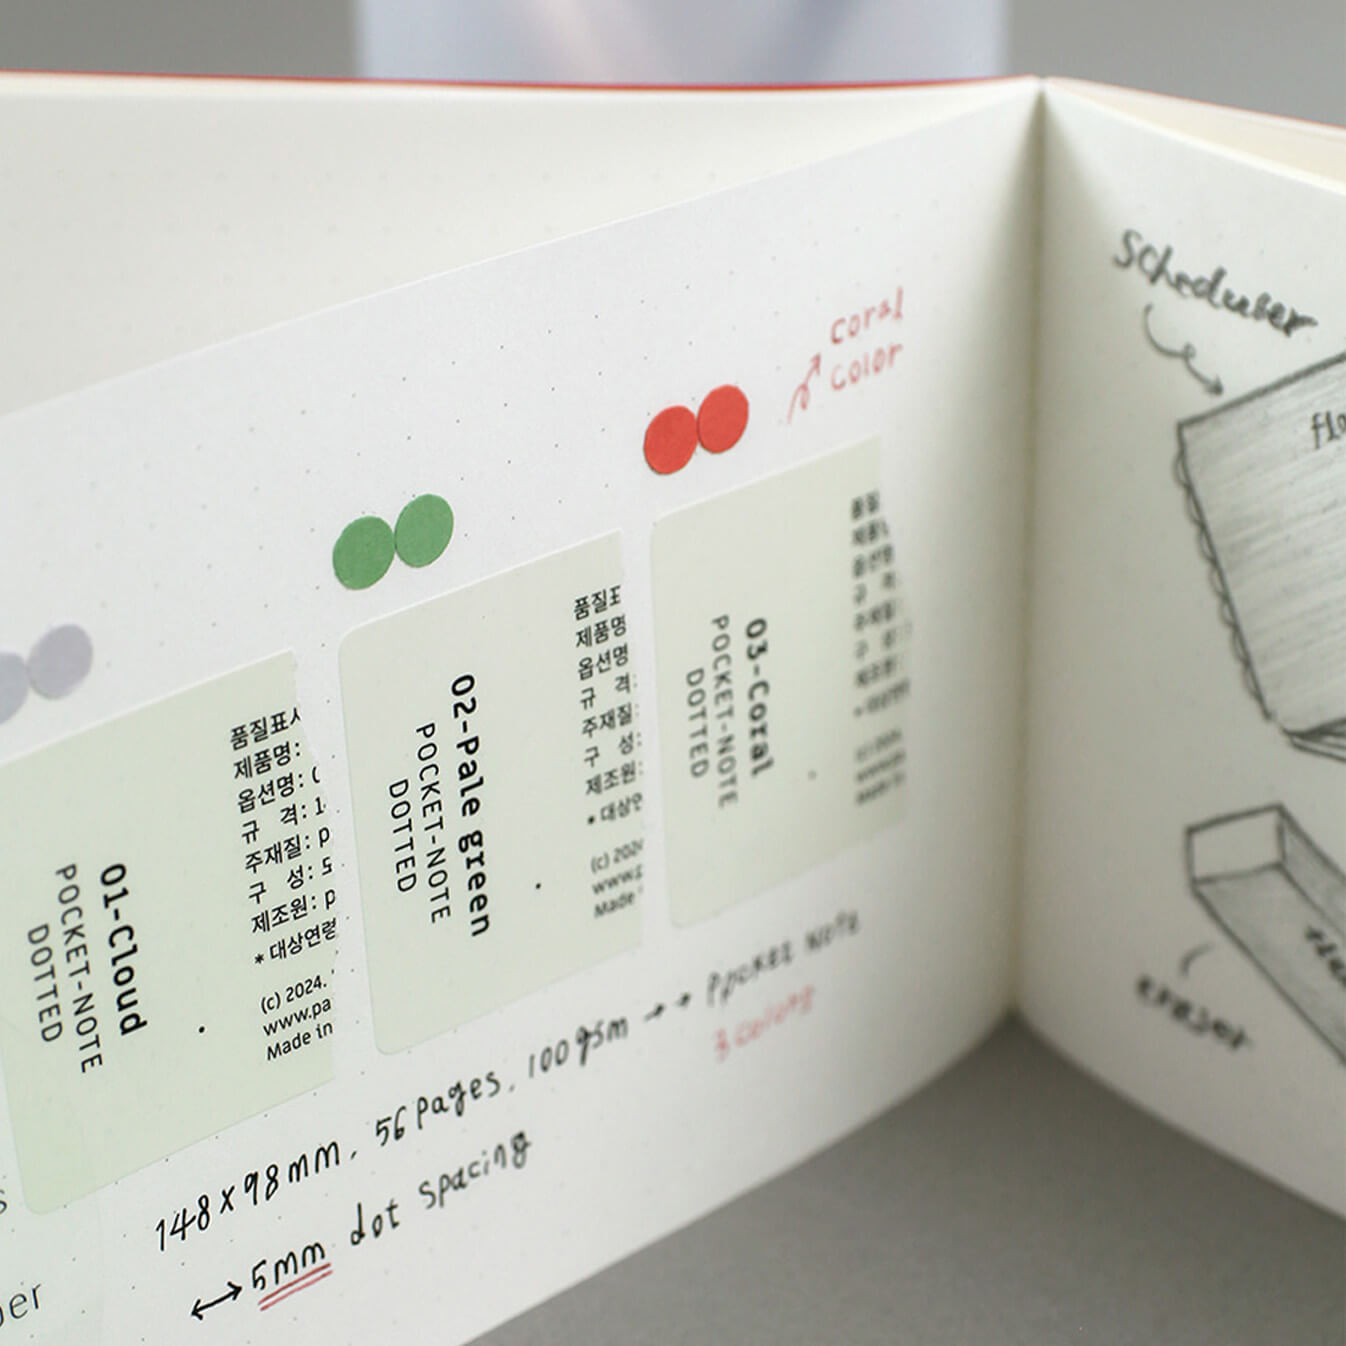 coral
color
01-Cloud
POCKET-NOTE
DOTTED
품질표시
제품명:
옵션명:
규 격: 1
주재질: p
구 성: 5
제조원: p
* 대상연령
(c) 2024.
www.pa
Made in
02-Pale green
POCKET-NOTE
DOTTED
품질표
제품명
옵션명
규 격:
주재질:
구 성:
제조원:
* 대상연
(c) 202
www.p
Made
03-Coral
POCKET-NOTE
DOTTED
품질
제품
옵션명
규 격:
주재질:
구 성:
제조원:
* 대상연
148x98mm, 56 pages, 100gsm → → Ppocket NOTE
3 colors
↔ 5mm dot spacing
Scheduler
eraser